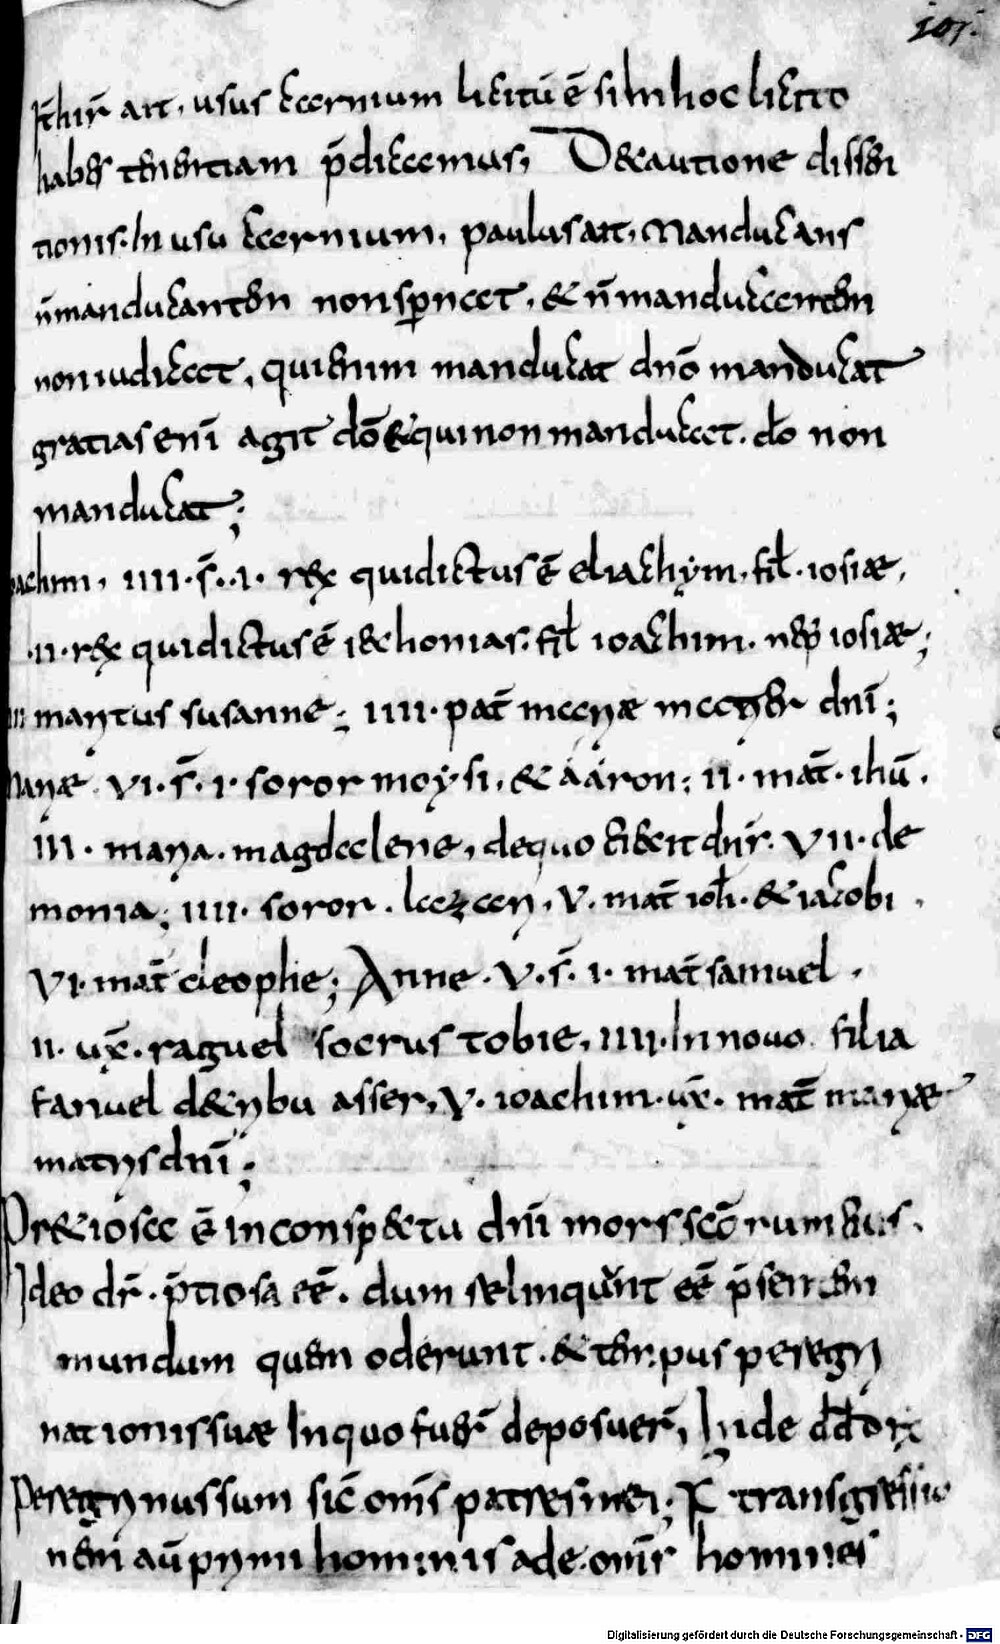 107.
hir̄ ait, usus carnium licitū ē si in hoc licito
habes temtiam p̄dicamus, De cautione dissen
tionis. In usu carnium, paulus ait, Manducans
n̄manducantem non spernat, & n̄manducantem
non iudicet, qui enim manducat dn̄o manducat
gratias enī agit dō & qui non manducat. dō non
manducat;
oachim, IIII. s̄. I. rex qui dictus ē eliachym, fil. iosiæ,
.II. rex qui dictus ē iechonias. fil ioachim. nep iosiæ;
III maritus susanne; IIII. pat̄ mariæ matris dnī;
Mariæ. VI. s̄. I. soror moysi, & aaron; II. mat̄. ihū.
III. maria. magdalene, de quo eiecit dnr̄. VII. de
monia; IIII. soror. lazari, V. mat̄ ioh. & iacobi.
VI. mat̄ cleophe; Anne. V. s̄. I. mat̄ samuel.
II. ux̄. raguel socrus tobie, IIII. In novo filia
fanuel de tribu asser, V. ioachim. ux̄. mat̄ mariæ
matris dnī;
Pretiosa ē in conspectu dnī mors scōrum eius.
Ideo dr̄. p̄tiosa eē. dum relinquunt eē p̄sentem
mundum quem oderunt. & tempus peregri
nationis suæ In quo fuer̄ deposuer̄, Inde dd dix
Peregrinus sum sic̄ om̄s patres mei; P transgressio
nem aū primi hominis ade. om̄s homines
Digitalisierung gefördert durch die Deutsche Forschungsgemeinschaft - DFG